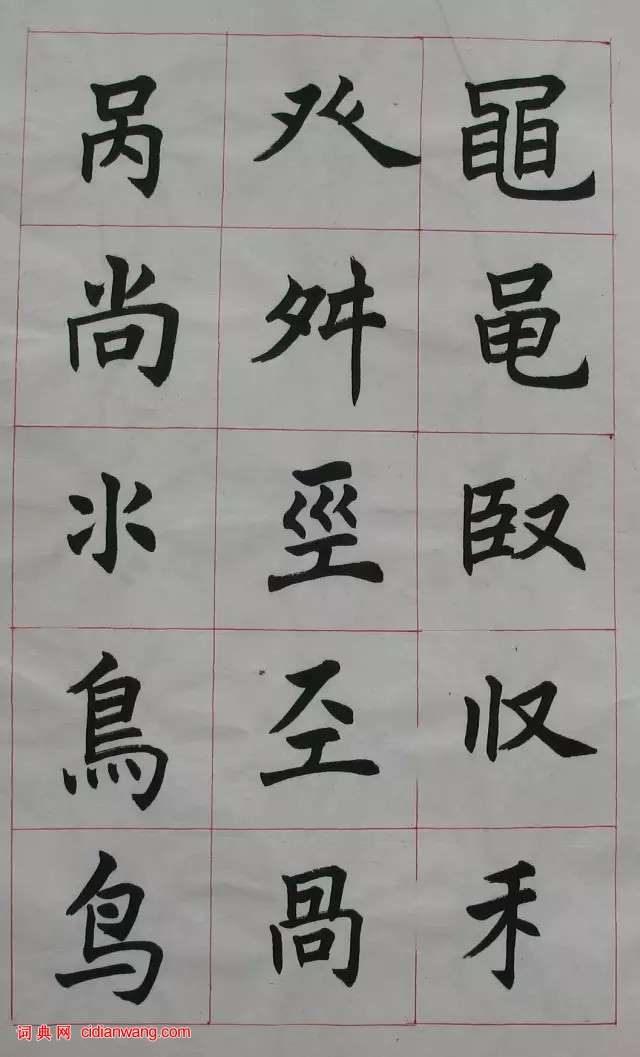 黽
黾
臤
癶
舛
巠
𢀖
咼
呙
尚
氺
鳥
鸟
词典网 cidianwang.com